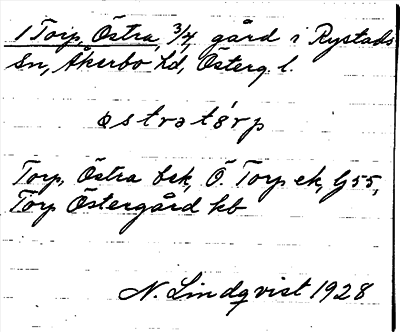 1 Torp, Östra, 3/4 gård i Rystads
Sn, Åkerbo hd, Österg. l.
østratørp
Torp, Östra bsk, Ö. Torp ek, G55,
Torp Östergård kb
N. Lindqvist 1928